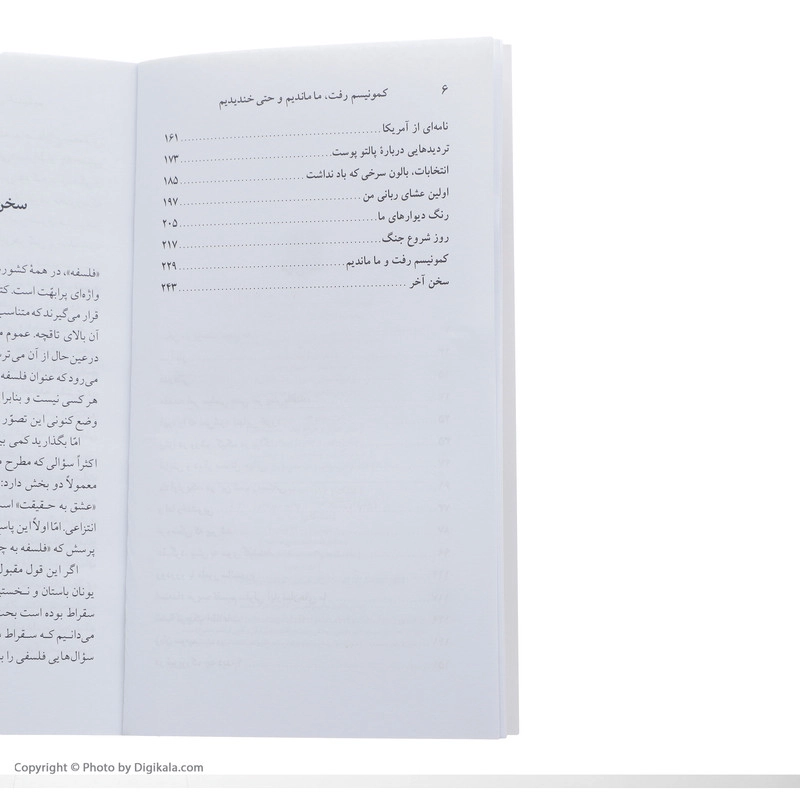 ۶ کمونیسم رفت، ما ماندیم و حتی خندیدیم
نامه‌ای از آمریکا ۱۶۱
تردیدهایی دربارهٔ پالتو پوست ۱۷۳
انتخابات، بالون سرخی که باد نداشت ۱۸۵
اولین عشای ربانی من ۱۹۷
رنگ دیوارهای ما ۲۰۵
روز شروع جنگ ۲۱۷
کمونیسم رفت و ما ماندیم ۲۲۹
سخن آخر ۲۴۳
«فلسفه»، در همهٔ
واژه‌ای پرابهّت است.
قرار می‌گیرند که
آن بالای تاقچه. عموم
در عین‌حال از آن
می‌رود که عنوان فلسفه
هر کسی نیست و
وضع کنونی این تصوّر
امّا بگذارید کمی
اکثراً سؤالی که مطرح
معمولاً دو بخش دارد:
«عشق به حقیقت»
انتزاعی. امّا اولاً این
پرسش که «فلسفه به
اگر این قول مقبول
یونان باستان و
سقراط بوده است
می‌دانیم که سقراط
سؤال‌هایی فلسفی را
Copyright © Photo by Digikala.com